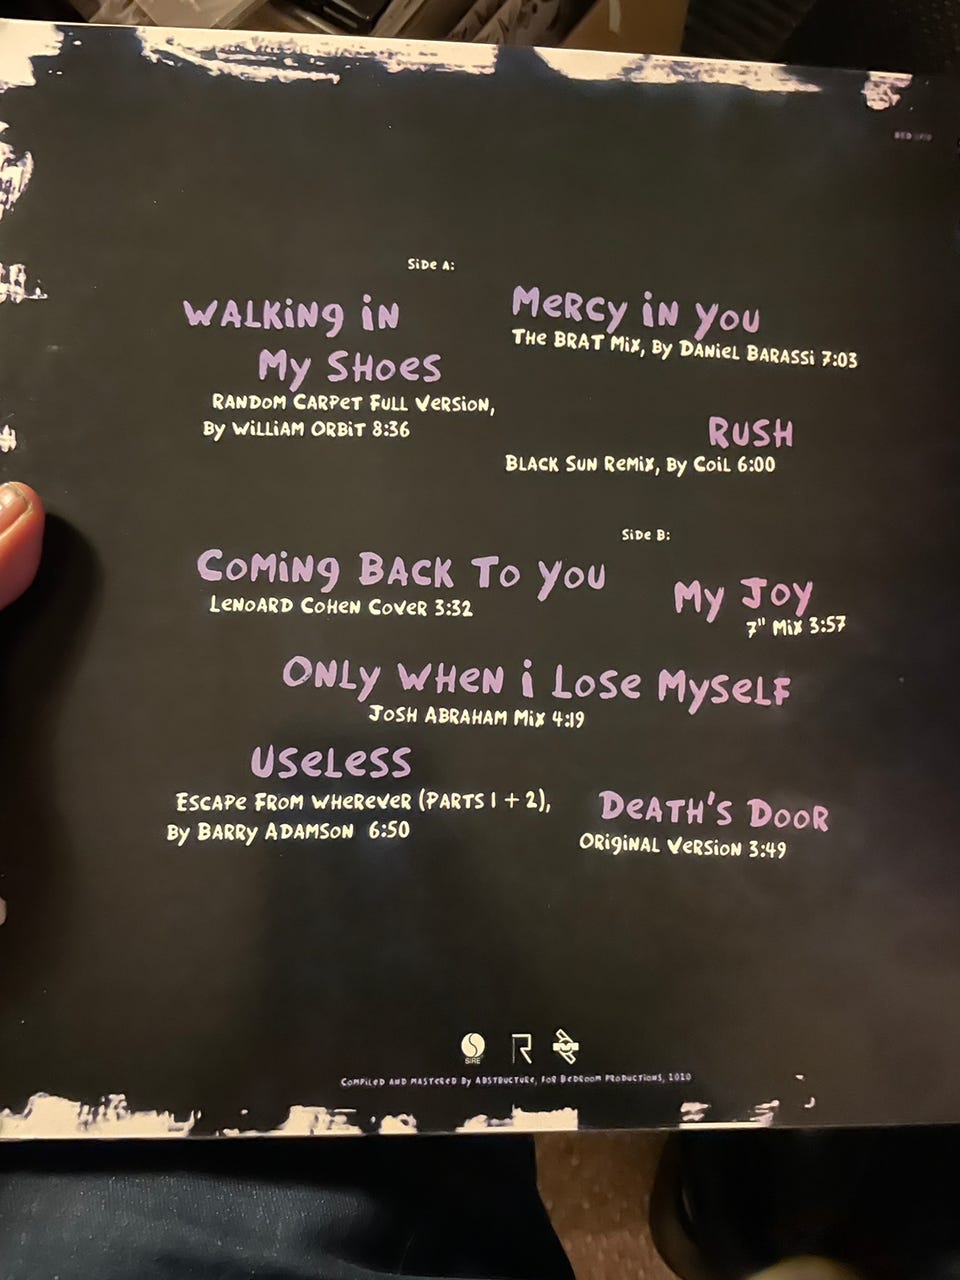 Side A:
WALKiNg iN
My SHOeS
RANDOM CARPeT FULL VeRSiON,
By WiLLiAM ORBiT 8:36
MeRCy iN yOU
THe BRAT MiX, By DANieL BARASSi 7:03
RUSH
BLACK SUN ReMiX, By COiL 6:00
SiDe B:
COMiNg BACK TO yOU
LeNOARD COHeN COVeR 3:32
My JOy
7" MiX 3:57
ONLy WHeN i LOSe MySeLF
JOSH ABRAHAM MiX 4:19
USeLeSS
eSCAPe FROM WHeReVeR (PARTS 1 + 2),
By BARRy ADAMSON 6:50
DeATH'S DOOR
ORigiNAL VeRSiON 3:49
SIRE
R
COMPiLeD AND MASTeReD By ABSTRUCTURe, FOR BeDROOM PRODUCTiONS, 2020